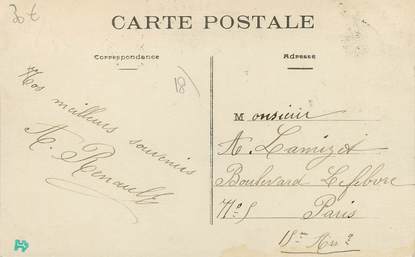 30€
CARTE POSTALE
Correspondance
Adresse
18
Nos meilleurs souvenirs
A. Renault
Monsieur
A. Lamizet
Boulevard Lefebvre
N° 5 Paris
15me Arr